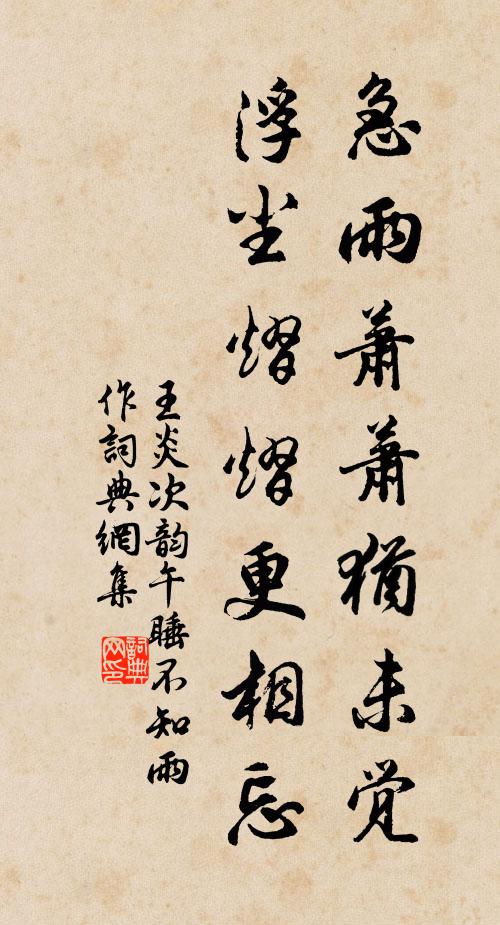 急雨萧萧犹未觉
浮尘熠熠更相忘
王炎次韵午睡不知雨
作詞典網集
詞典网印